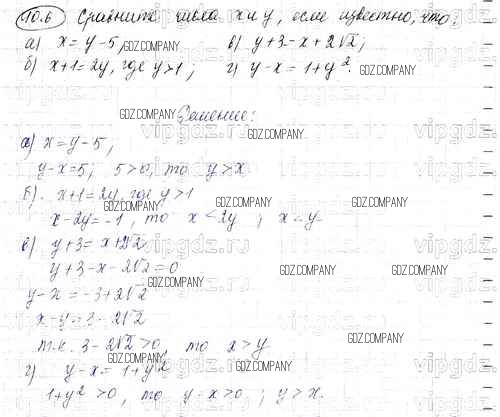 10.6 Сравните числа x и y, если известно, что:
а) x = y - 5, в) y + 3 - x + 2√2;
б) x + 1 = 2y, где y > 1; г) y - x = 1 + y².
Решение:
а) x = y - 5,
y - x = 5; 5 > 0, то y > x
б) x + 1 = 2y, где y > 1
x - 2y = -1, то x < 2y ; x < y
в) y + 3 = x + 2√2
y + 3 - x - 2√2 = 0
y - x = -3 + 2√2
x - y = 3 - 2√2
т.к. 3 - 2√2 > 0, то x > y
г) y - x = 1 + y²
1 + y² > 0, то y - x > 0 ; y > x.
GDZ.COMPANY
GDZ.COMPANY
GDZ.COMPANY
GDZ.COMPANY
GDZ.COMPANY
GDZ.COMPANY
GDZ.COMPANY
GDZ.COMPANY
GDZ.COMPANY
GDZ.COMPANY
GDZ.COMPANY
GDZ.COMPANY
GDZ.COMPANY
GDZ.COMPANY
vipgdz.ru